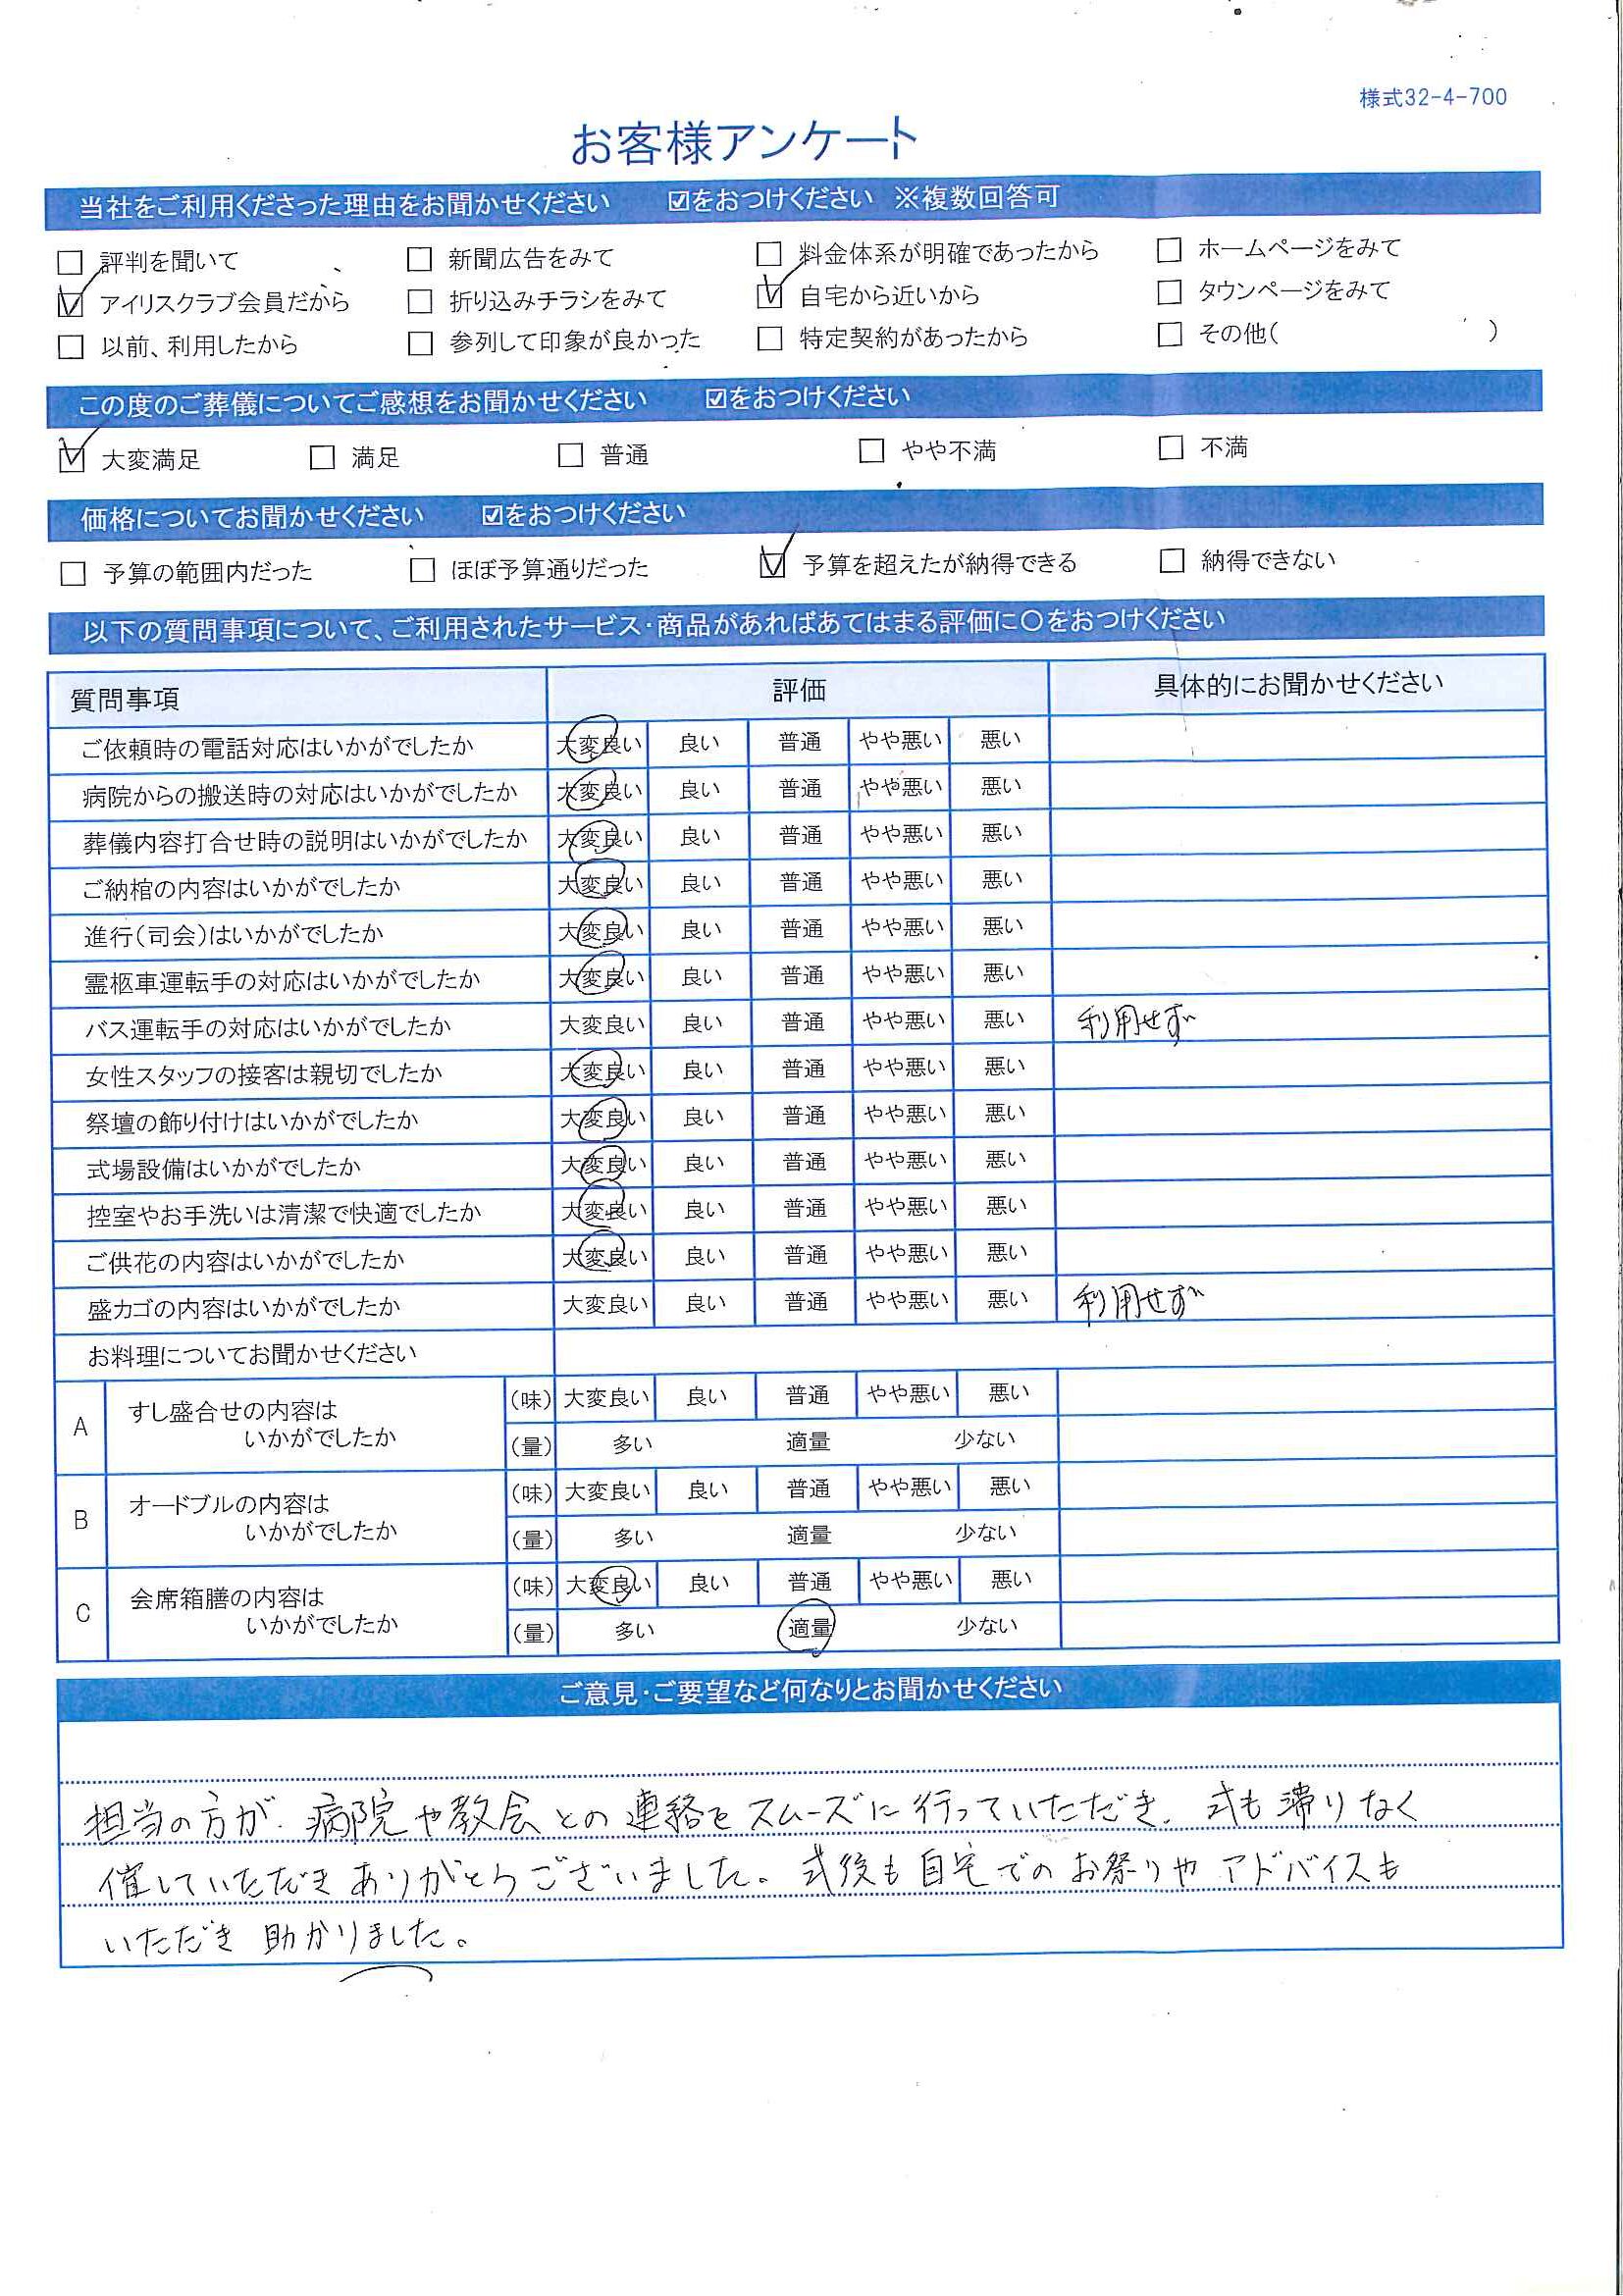 様式32-4-700
お客様アンケート
当社をご利用くださった理由をお聞かせください ☑をおつけください ※複数回答可
□ 評判を聞いて □ 新聞広告をみて □ 料金体系が明確であったから □ ホームページをみて
☑ アイリスクラブ会員だから □ 折り込みチラシをみて ☑ 自宅から近いから □ タウンページをみて
□ 以前、利用したから □ 参列して印象が良かった □ 特定契約があったから □ その他( )
この度のご葬儀についてご感想をお聞かせください ☑をおつけください
☑ 大変満足 □ 満足 □ 普通 □ やや不満 □ 不満
価格についてお聞かせください ☑をおつけください
□ 予算の範囲内だった □ ほぼ予算通りだった ☑ 予算を超えたが納得できる □ 納得できない
以下の質問事項について、ご利用されたサービス・商品があればあてはまる評価に○をおつけください
質問事項 評価 具体的にお聞かせください
ご依頼時の電話対応はいかがでしたか 大変良い 良い 普通 やや悪い 悪い
病院からの搬送時の対応はいかがでしたか 大変良い 良い 普通 やや悪い 悪い
葬儀内容打合せ時の説明はいかがでしたか 大変良い 良い 普通 やや悪い 悪い
ご納棺の内容はいかがでしたか 大変良い 良い 普通 やや悪い 悪い
進行(司会)はいかがでしたか 大変良い 良い 普通 やや悪い 悪い
霊柩車運転手の対応はいかがでしたか 大変良い 良い 普通 やや悪い 悪い
バス運転手の対応はいかがでしたか 大変良い 良い 普通 やや悪い 悪い 利用せず
女性スタッフの接客は親切でしたか 大変良い 良い 普通 やや悪い 悪い
祭壇の飾り付けはいかがでしたか 大変良い 良い 普通 やや悪い 悪い
式場設備はいかがでしたか 大変良い 良い 普通 やや悪い 悪い
控室やお手洗いは清潔で快適でしたか 大変良い 良い 普通 やや悪い 悪い
ご供花の内容はいかがでしたか 大変良い 良い 普通 やや悪い 悪い
盛カゴの内容はいかがでしたか 大変良い 良い 普通 やや悪い 悪い 利用せず
お料理についてお聞かせください
A すし盛合せの内容は いかがでしたか (味) 大変良い 良い 普通 やや悪い 悪い
(量) 多い 適量 少ない
B オードブルの内容は いかがでしたか (味) 大変良い 良い 普通 やや悪い 悪い
(量) 多い 適量 少ない
C 会席箱膳の内容は いかがでしたか (味) 大変良い 良い 普通 やや悪い 悪い
(量) 多い 適量 少ない
ご意見・ご要望など何なりとお聞かせください
担当の方が、病院や教会との連絡をスムーズに行っていただき、式も滞りなく
催していただきありがとうございました。式後も自宅でのお祭りやアドバイスも
いただき助かりました。